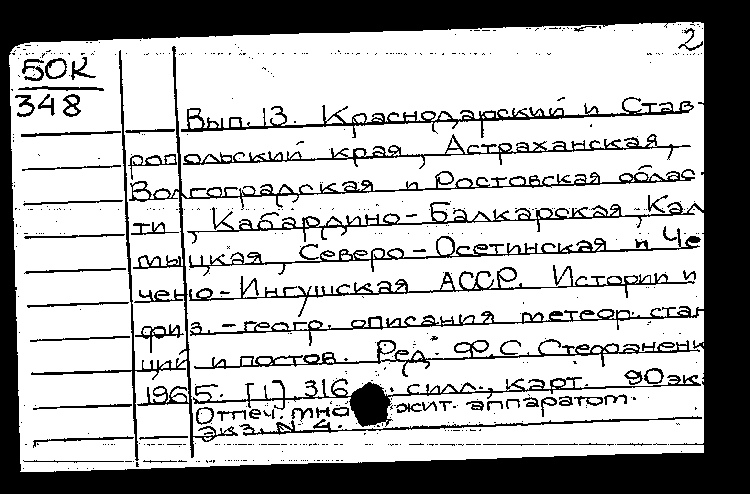 2
50К
348
Вып. 13. Краснодарский и Став-
ропольский края, Астраханская,
Волгоградская и Ростовская облас-
ти, Кабардино-Балкарская, Кал
мыцкая, Северо-Осетинская и Че
чено-Ингушская АССР. Истории и
физ.-геогр. описания метеор. стан
ций и постов. Ред. Ф.С. Стефаненк
1965. [1], 316 . силл., карт. 90 экз
Отпеч. мно жит. аппаратом.
экз. N 4.